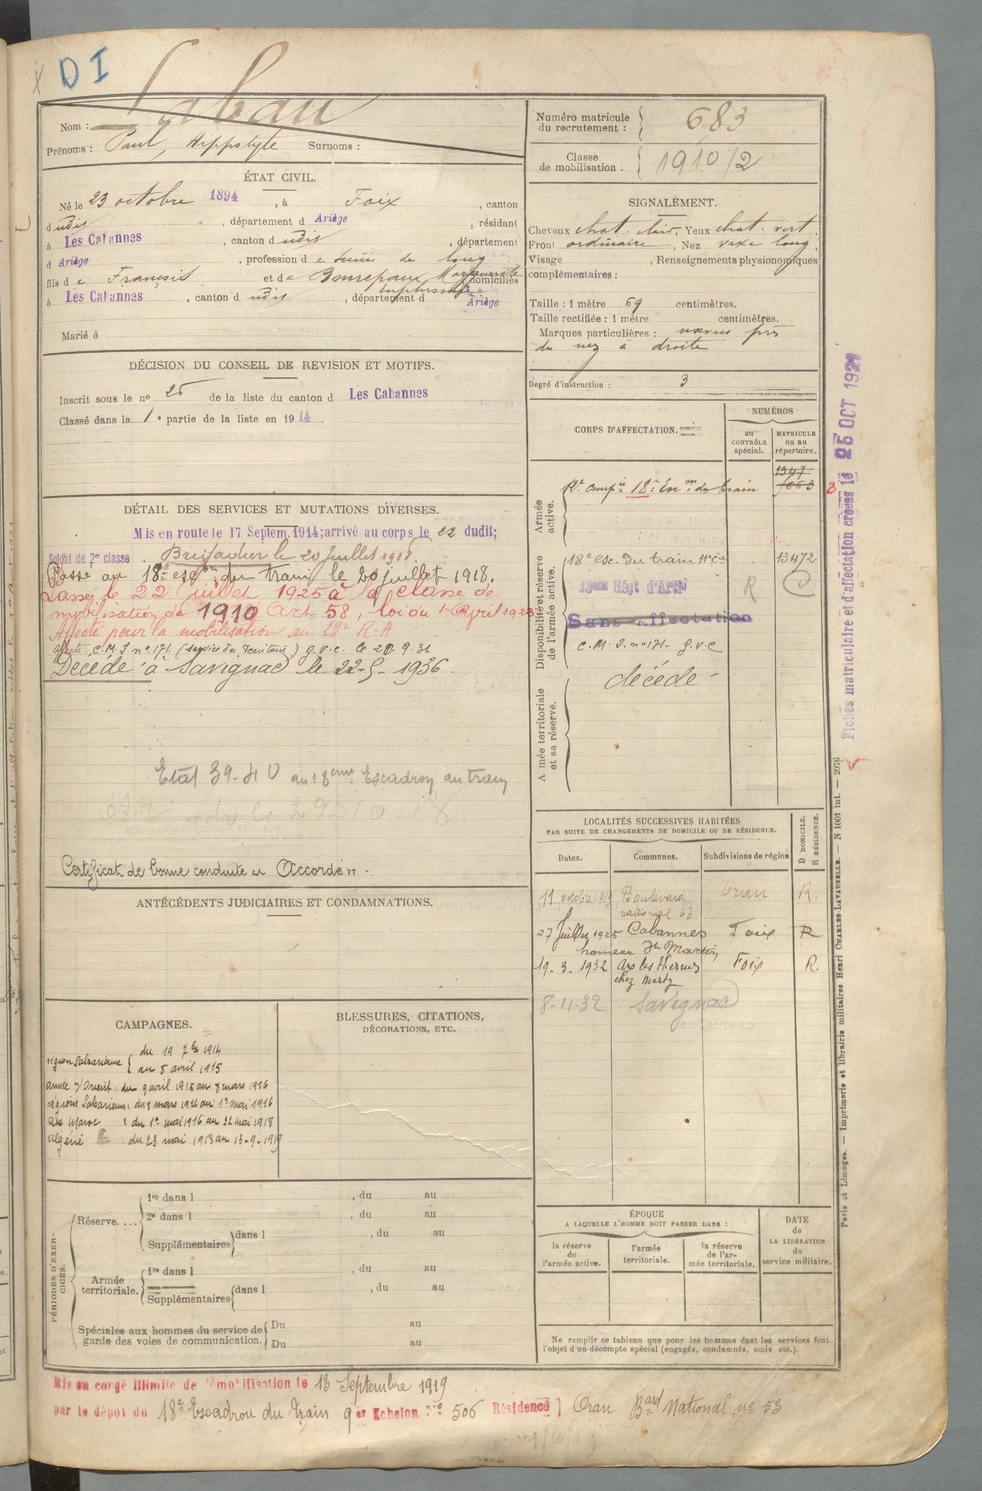 DI
Nom : Laban
Prénoms : Paul, Hippolyte Surnoms :
ÉTAT CIVIL.
Né le 23 octobre 1894, à Foix, canton
dudit, département d Ariège, résidant
à Les Cabannes, canton dudit, département
d Ariège, profession de
fils de François et de Bonrepaux Marguerite domiciliés
à Les Cabannes, canton dudit, département d Ariège
Marié à
DÉCISION DU CONSEIL DE REVISION ET MOTIFS.
Inscrit sous le n° 25 de la liste du canton d Les Cabannes
Classé dans la 1e partie de la liste en 1914.
DÉTAIL DES SERVICES ET MUTATIONS DIVERSES.
Mis en route le 17 Septem. 1914; arrivé au corps le 22 dudit;
Soldat de 2me classe Brigadier le 20 juillet 1918.
Passé au 18e escon du train le 20 juillet 1918.
Classé le 22 juillet 1925 à la classe de
mobilisation de 1910 Art 58, loi du 1er Avril 1923
Affecté pour la mobilisation au R.A
affecté C.M.I n° 171. (service du territoire) G.V.C. le 20.9.31
Décédé à Savignac le 22-5-1936.
Etat 39-40 au 18eme Escadron du train
Certificat de bonne conduite " Accordé ".
ANTÉCÉDENTS JUDICIAIRES ET CONDAMNATIONS.
CAMPAGNES.
région Saharienne { du 19 7bre 1914
au 5 avril 1915
armée d'Orient : du 9 avril 1915 au 7 mars 1916
régions Sahariennes : du 8 mars 1916 au 1er mai 1916
Maroc : du 1er mai 1916 au 22 mai 1918
Algérie : du 23 mai 1918 au 13-9-1919
BLESSURES, CITATIONS,
DÉCORATIONS, ETC.
PÉRIODES D'EXERCICES.
Réserve....
1re dans l , du au
2e dans l , du au
Supplémentaires dans l , du au
Armée territoriale.
1re dans l , du au
Supplémentaires dans l , du au
Spéciales aux hommes du service de
garde des voies de communication.
Du au
Du au
Mis en congé illimité de démobilisation le 13 Septembre 1919
par le dépôt du 18e Escadron du Train 9e Echelon N° 506 Résidence } Oran Bard National n° 53
Numéro matricule
du recrutement : 683
Classe
de mobilisation : 1910/2
SIGNALEMENT.
Cheveux chat. clair, Yeux chat. vert.
Front ordinaire, Nez vexe long,
Visage , Renseignements physionomiques
complémentaires :
Taille : 1 mètre 69 centimètres.
Taille rectifiée : 1 mètre centimètres.
Marques particulières : nævus près
du nez à droite
Degré d'instruction : 3
CORPS D'AFFECTATION.
NUMÉROS
au
CONTRÔLE
spécial.
MATRICULE
ou au
répertoire.
Armée
active.
18e Escon du train
Disponibilité et réserve
de l'armée active.
18e esc. du train 13472
Régt d'Artie R
Sans affectation
C.M.I. n° 171- G.V.C
Armée territoriale
et sa réserve.
décédé
LOCALITÉS SUCCESSIVES HABITÉES
PAR SUITE DE CHANGEMENTS DE DOMICILE OU DE RÉSIDENCE.
Dates. Communes. Subdivisions de région D DOMICILE. R RÉSIDENCE.
11 octobre 1919 Boulevard national Oran R.
27 Juillet 1925 Cabannes Foix R
hameau St Martin
19-3-1932 Ax les thermes Foix R.
chez Marty
8-11-32 Savignac
ÉPOQUE
A LAQUELLE L'HOMME DOIT PASSER DANS :
la réserve
de
l'armée active.
l'armée
territoriale.
la réserve
de l'ar-
mée territoriale.
DATE
de
LA LIBÉRATION
du
service militaire.
Ne remplir ce tableau que pour les hommes dont les services font
l'objet d'un décompte spécial (engagés, condamnés, omis etc.).
Fiches matriculaire et d'affectation créées le 25 OCT 1921
Paris et Limoges. — Imprimerie et librairie militaires Henri CHARLES-LAVAUZELLE. — N 1001 int. — 2976